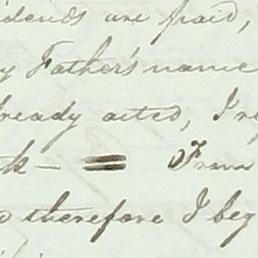 idends are paid,
y Father's name
ready acted, I
k — = From
therefore I beg